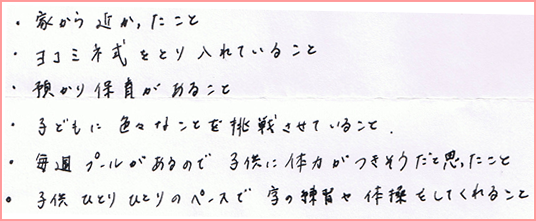 ・家から近かったこと
・ヨコミネ式をとり入れていること
・預かり保育があること
・子どもに色々なことを挑戦させていること.
・毎週プールがあるので子供に体力がつきそうだと思ったこと
・子供ひとりひとりのペースで字の練習や体操をしてくれること